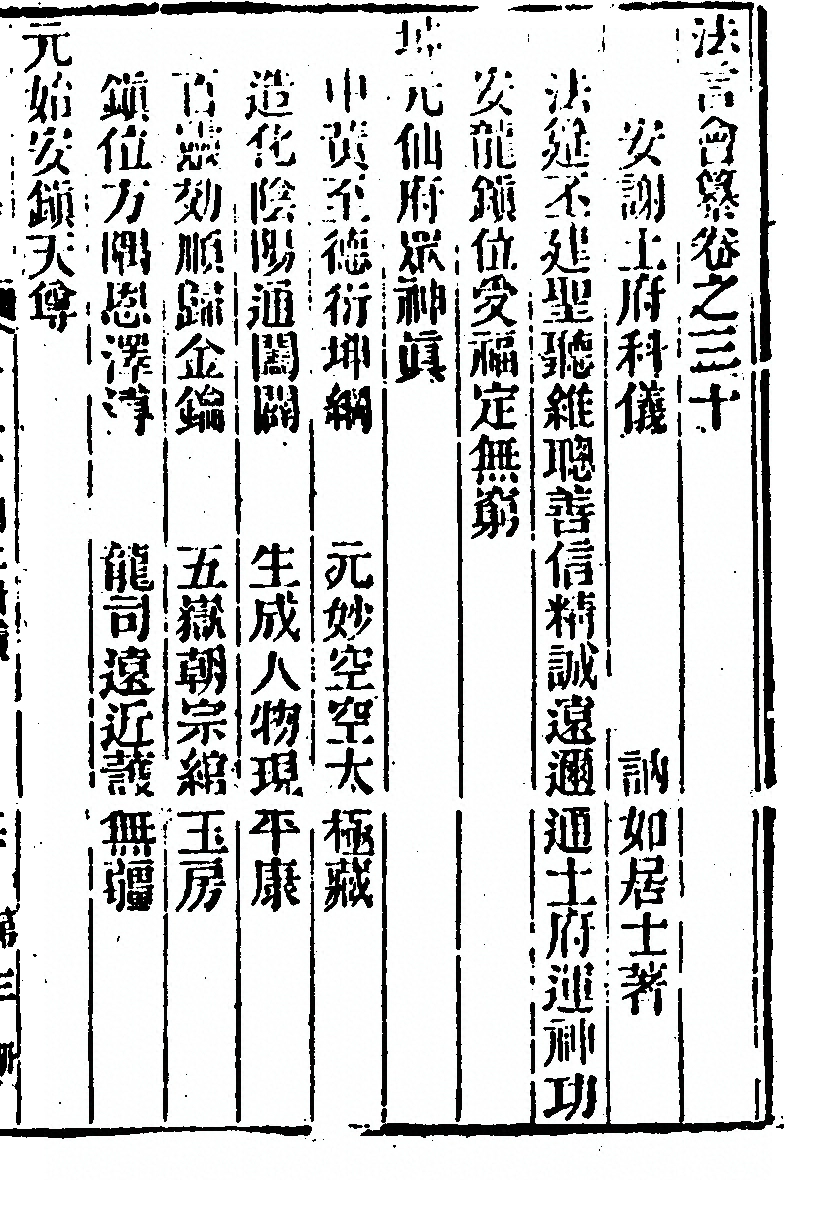 法言會纂卷之三十
安謝土府科儀 訥如居士著
法筵丕建聖聽維聰善信精誠遠邇通土府運神功
安龍鎮位受福定無窮
坤元仙府眾神眞
中黃至德衍坤綱 元妙空空太極藏
造化陰陽通闔闢 生成人物現平康
百靈効順歸金鑰 五嶽朝宗綰玉房
鎮位方隅恩澤溥 龍司遠近護無疆
元始安鎮天尊
第三